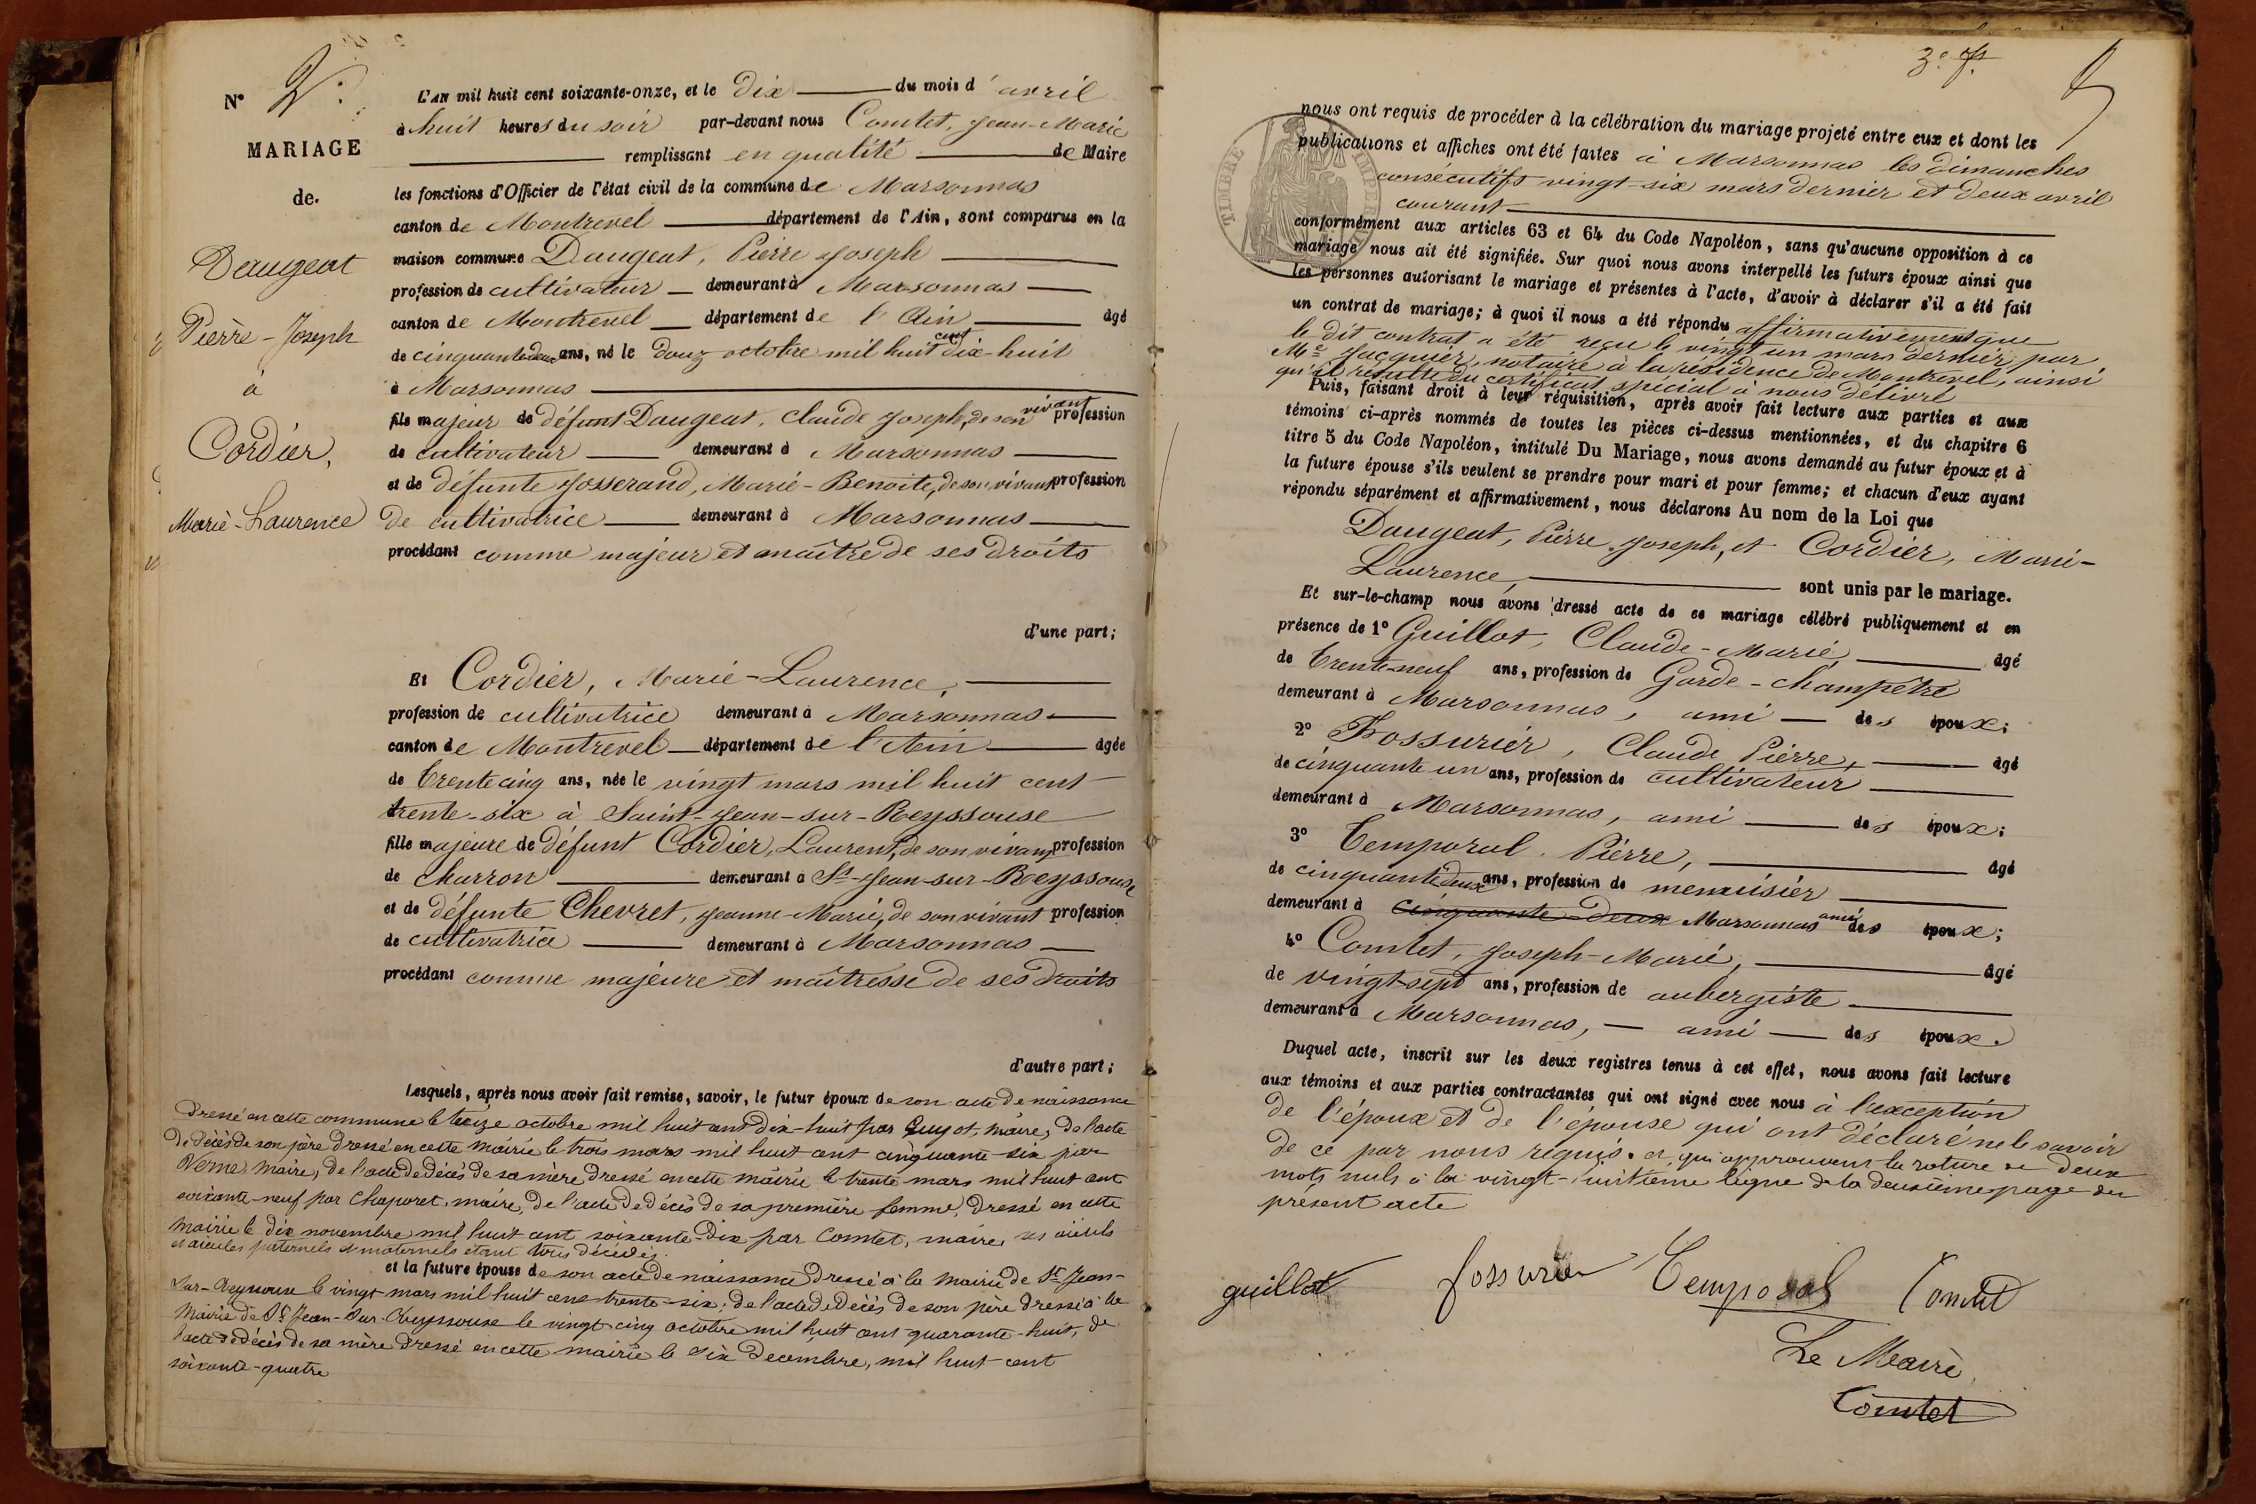 N° 2.
MARIAGE
de.
Daugeat
Pierre-Joseph
à
Cordier,
Marie-Laurence
L'AN mil huit cent soixante-onze, et le dix du mois d'avril
à huit heures du soir par-devant nous Comtet, Jean-Marie
remplissant en qualité de Maire
les fonctions d'Officier de l'état civil de la commune de Marsonnas
canton de Montrevel département de l'Ain, sont comparus en la
maison commune Daugeat, Pierre Joseph
profession de cultivateur demeurant à Marsonnas
canton de Montrevel département de l'Ain âgé
de cinquante deux ans, né le douz octobre mil huit cent dix-huit
à Marsonnas
fils majeur de défunt Daugeat, Claude Joseph, de son vivant profession
de cultivateur demeurant à Marsonnas
et de défunte Josserand, Marie-Benoite, de son vivant profession
de cultivatrice demeurant à Marsonnas
procédant comme majeur et maître de ses droits
d'une part;
Et Cordier, Marie-Laurence,
profession de cultivatrice demeurant à Marsonnas
canton de Montrevel département de l'Ain âgée
de trente cinq ans, née le vingt mars mil huit cent
trente-six à Saint-Jean-sur-Reyssouse
fille majeure de défunt Cordier, Laurent, de son vivant profession
de charron demeurant à St-Jean-sur-Reyssouse
et de défunte Chevret, Jeanne-Marie, de son vivant profession
de cultivatrice demeurant à Marsonnas
procédant comme majeure et maîtresse de ses droits
d'autre part;
Lesquels, après nous avoir fait remise, savoir, le futur époux de son acte de naissance
dressé en cette commune le treize octobre mil huit cent dix-huit par Guyot, maire, de l'acte
de décès de son père dressé en cette mairie le trois mars mil huit cent cinquante-six par
Verne maire, de l'acte de décès de sa mère dressé en cette mairie le trente mars mil huit cent
soixante-neuf par Chaporet, maire, de l'acte de décès de sa première femme, dressé en cette
mairie le dix novembre mil huit cent soixante-dix par Comtet, maire, ses aïeuls
et aïeules paternels et maternels étant tous décédés.
et la future épouse de son acte de naissance dressé à la mairie de St Jean-
sur-Reyssouse le vingt mars mil huit cent trente-six; de l'acte de décès de son père dressé à la
mairie de St Jean-sur-Reyssouse le vingt-cinq octobre mil huit cent quarante-huit, de
l'acte de décès de sa mère dressé en cette mairie le six décembre, mil huit cent
soixante-quatre
3e f.
nous ont requis de procéder à la célébration du mariage projeté entre eux et dont les
publications et affiches ont été faites à Marsonnas les dimanches
consécutifs vingt-six mars dernier et deux avril
courant
conformément aux articles 63 et 64 du Code Napoléon, sans qu'aucune opposition à ce
mariage nous ait été signifiée. Sur quoi nous avons interpellé les futurs époux ainsi que
les personnes autorisant le mariage et présentes à l'acte, d'avoir à déclarer s'il a été fait
un contrat de mariage; à quoi il nous a été répondu affirmativement que
le dit contrat a été reçu le vingt un mars dernier, par
Me Jacquier, notaire à la résidence de Montrevel, ainsi
qu'il résulte du certificat spécial à nous délivré
Puis, faisant droit à leur réquisition, après avoir fait lecture aux parties et aux
témoins ci-après nommés de toutes les pièces ci-dessus mentionnées, et du chapitre 6
titre 5 du Code Napoléon, intitulé Du Mariage, nous avons demandé au futur époux et à
la future épouse s'ils veulent se prendre pour mari et pour femme; et chacun d'eux ayant
répondu séparément et affirmativement, nous déclarons Au nom de la Loi que
Daugeat, Pierre Joseph, et Cordier, Marie-
Laurence, sont unis par le mariage.
Et sur-le-champ nous avons dressé acte de ce mariage célébré publiquement et en
présence de 1° Guillot, Claude-Marie, âgé
de trente-neuf ans, profession de Garde-champêtre
demeurant à Marsonnas, ami des époux;
2° Fossurier, Claude Pierre, âgé
de cinquante un ans, profession de cultivateur
demeurant à Marsonnas, ami des époux;
3° Temporal, Pierre, âgé
de cinquante deux ans, profession de menuisier
demeurant à cinquante deux Marsonnas ami des époux;
4° Comtet, Joseph-Marie, âgé
de vingt-sept ans, profession de aubergiste
demeurant à Marsonnas, ami des époux.
Duquel acte, inscrit sur les deux registres tenus à cet effet, nous avons fait lecture
aux témoins et aux parties contractantes qui ont signé avec nous à l'exception
de l'époux et de l'épouse qui ont déclaré ne le savoir
de ce par nous requis. et qui approuvent la rature de deux
mots nuls à la vingt-huitième ligne de la deuxième page du
présent acte
guillot fossurier Temporal Comtet
Le Maire
Comtet